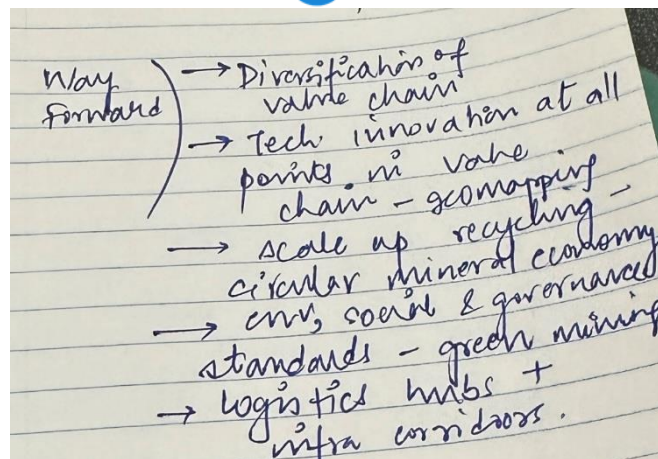 Way → Diversification of
forward value chain
→ Tech. innovation at all
points in value
chain - geomapping
→ scale up recycling -
circular mineral economy
→ env, social & governance
standards - green mining
→ logistics hubs +
infra corridors.